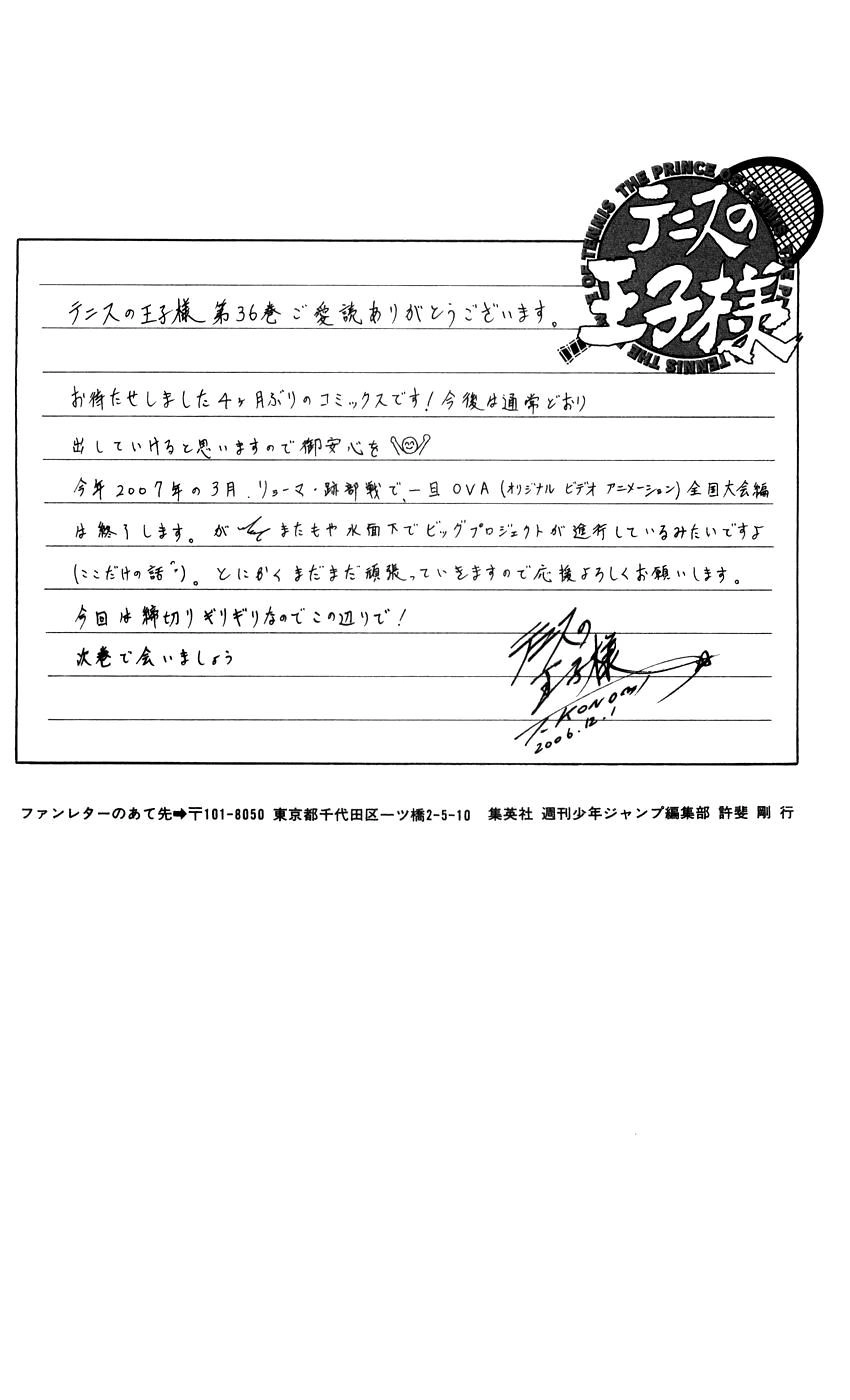 THE PRINCE OF TENNIS
テニスの
王子様
テニスの王子様 第36巻 ご愛読ありがとうございます。
お待たせしました4ヶ月ぶりのコミックスです！今後は通常どおり
出していけると思いますので御安心を
今年2007年の3月、リョーマ・跡部戦で、一旦OVA(オリジナル ビデオ アニメーション)全国大会編
は終了します。が またもや水面下でビッグプロジェクトが進行しているみたいですよ
(ここだけの話)。とにかくまだまだ頑張っていきますので応援よろしくお願いします。
今回は締切りギリギリなのでこの辺りで！
次巻で会いましょう
テニスの
王子様
T-KONOMI
2006.12.1
ファンレターのあて先➡〒101-8050 東京都千代田区一ツ橋2-5-10 集英社 週刊少年ジャンプ編集部 許斐 剛 行